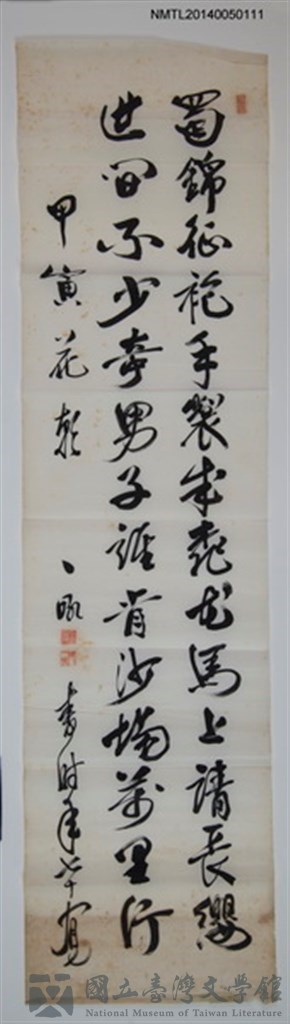 NMTL20140050111
蜀錦征袍手製成桃花馬上請長纓
世間不少奇男子誰肯沙場萬里行
甲寅花朝
書時年七十
國立臺灣文學館
National Museum of Taiwan Literature